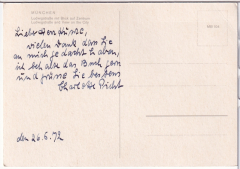 MÜNCHEN
Lieber Herr
vielen Dank, dass Sie
an mich gedacht haben,
ich behalte das Buch gern
und grüsse Sie bestens
Charlotte
den 26.6.72